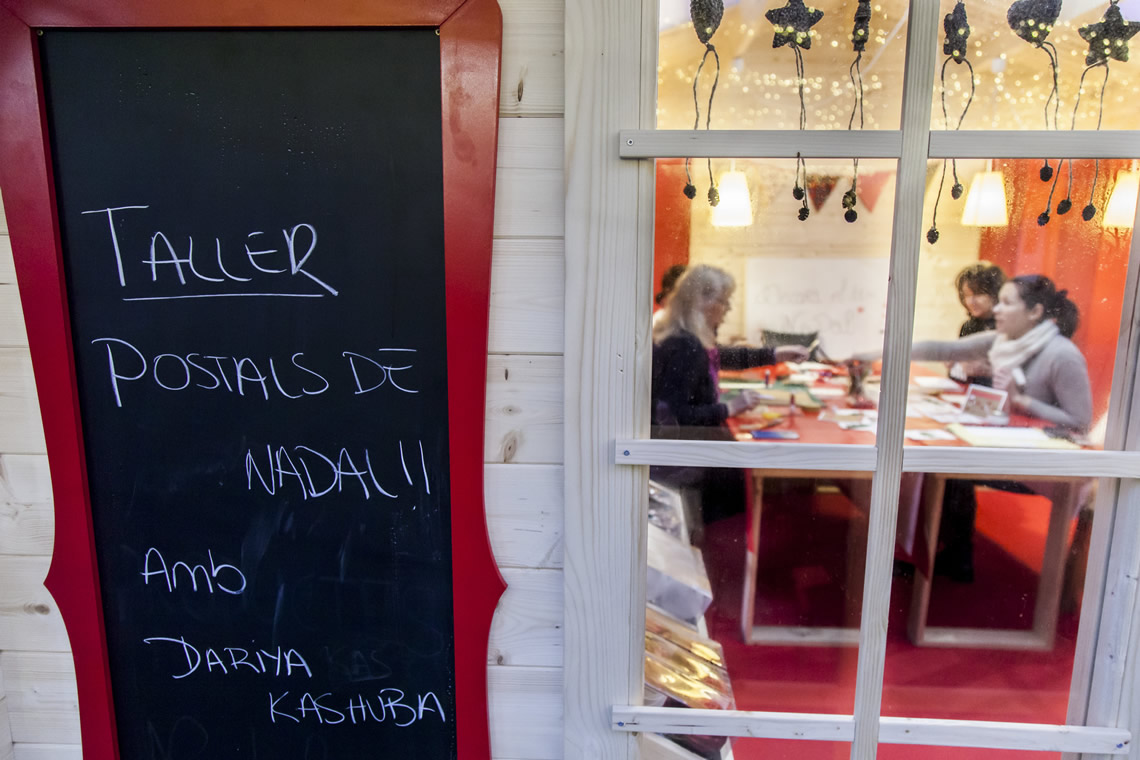 TALLER
POSTALS DE
NADAL!!
Amb
DARIYA
KASHUBA